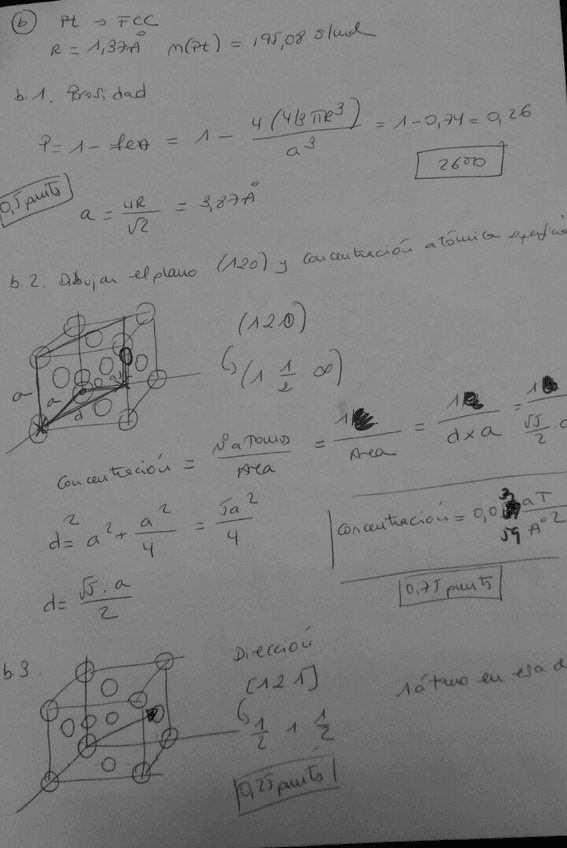 b Pt → FCC
R = 1,37 Å m(Pt) = 195,08 g/mol
b.1. Porosidad
P = 1 - feA = 1 - 4(4/3 πR³) / a³ = 1 - 0,74 = 0,26
26%
0,5 punts
a = 4R / √2 = 3,87 Å
b.2. Dibujar el plano (120) y concentración atómica
(120)
(1 1/2 ∞)
a
a
d
Concentración = Nº atomos / Area = 1 / Area = 1 / d x a = 1 / √5/2 .
d² = a² + a²/4 = 5a²/4
Concentración = 0,0 aT / Å²
d = √5 . a / 2
0,75 punts
b.3.
Dirección
[121]
1 átomo en esa
1/2 1 1/2
0,25 punts